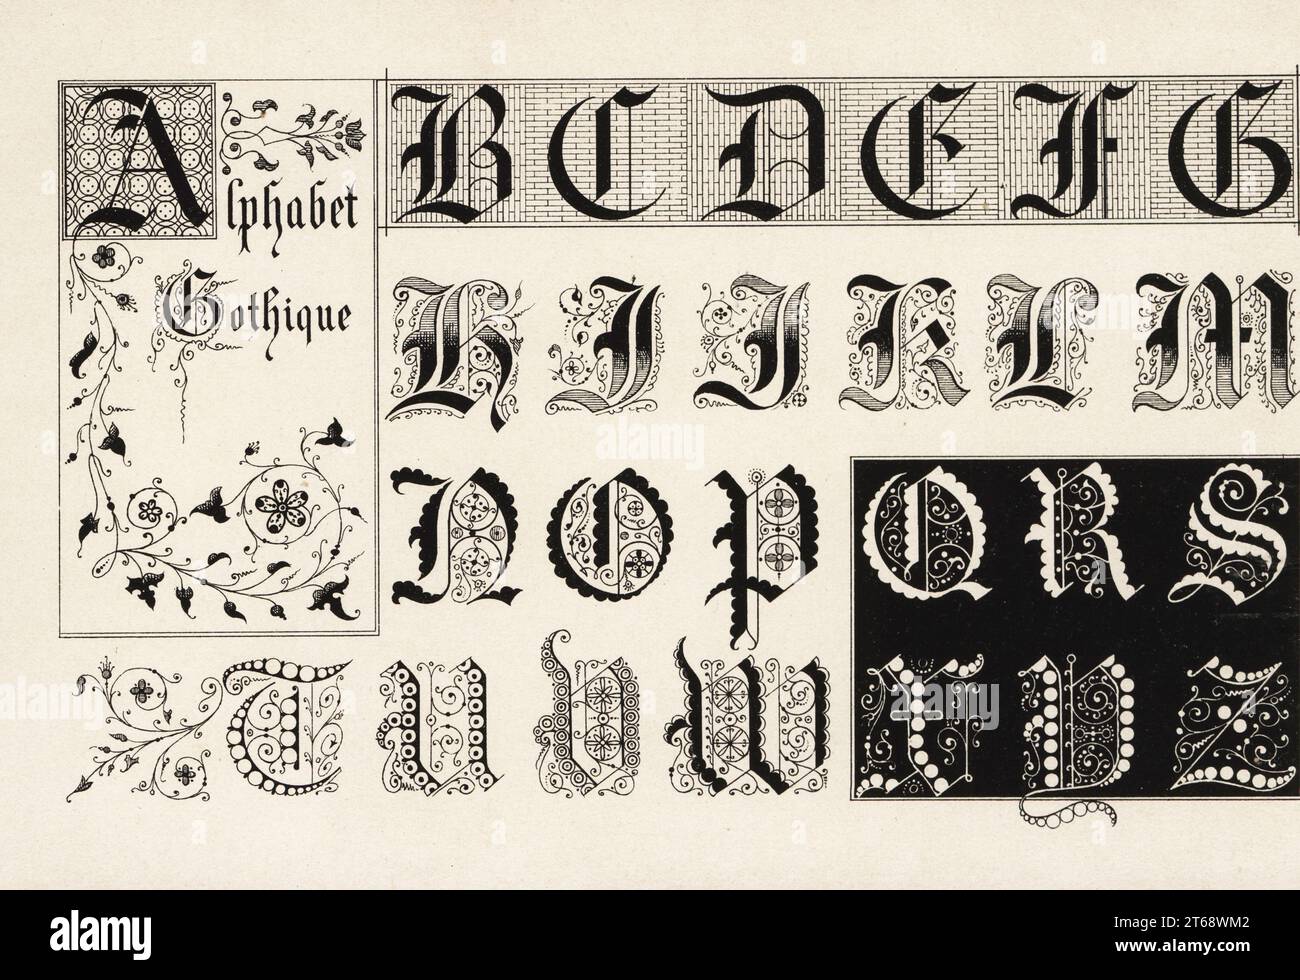 Alphabet
Gothique
B C D E F G
H I J K L M
N O P Q R S
T U V W X Y Z
alamy
Image ID: 2T68WM2
www.alamy.com